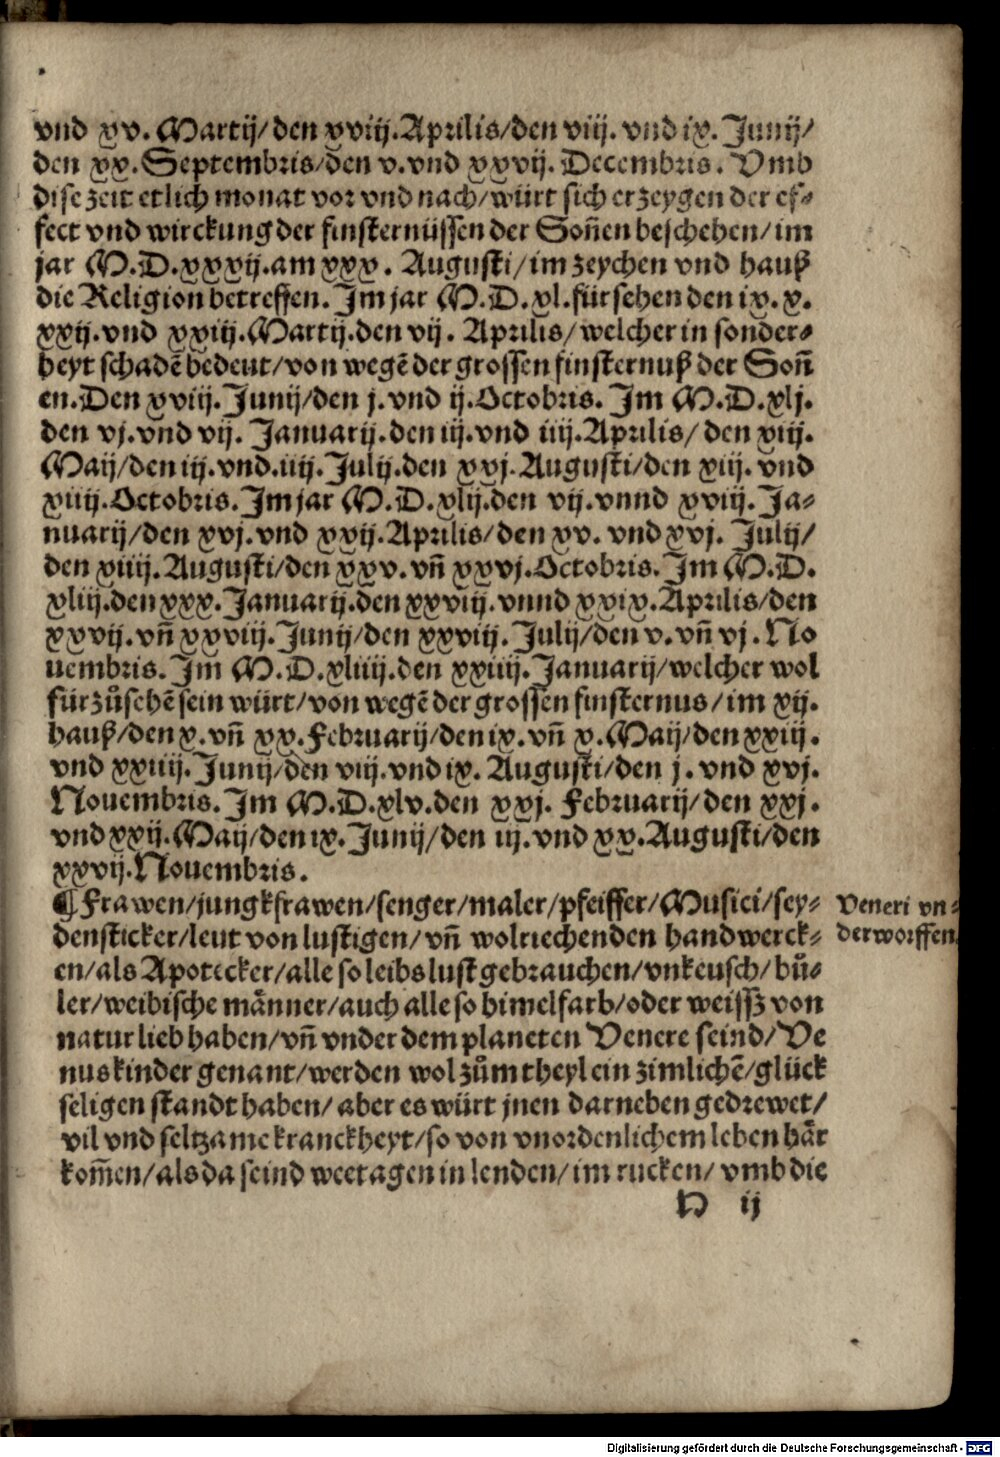 vnd xv. Martij/den xviij.Aprilis/den viij. vnd ix. Junij/
den xx. Septembris/den v.vnd xxvij. Decembris. Vmb
dise zeit etlich monat vor vnd nach/würt sich erzeygen der ef-
fect vnd wirckung der finsternüssen der Soñen beschehen/im
jar M.D.xxxij.am xxx. Augusti/im zeychen vnd hauß
die Religion betreffen. Im jar M.D.xl.fürsehen den ix.x.
xxij.vnd xxiij.Martij.den vij. Aprilis/welcher in sonder-
heyt schadē bedeut/von wegē der grossen finsternuß der Soñ
en.Den xviij.Junij/den j.vnd ij.Octobris. Im M.D.xlj.
den vj.vnd vij. Januarij.den iij.vnd iiij.Aprilis/ den xiij.
Maij/den iij.vnd.iiij.Julij.den xxj.Augusti/den xiij. vnd
xiiij.Octobris. Im jar M.D.xlij.den vij.vnnd xviij. Ja-
nuarij/den xvj.vnd xxij.Aprilis/den xv. vnd xvj. Julij/
den xiiij.Augusti/den xxv.vñ xxvj.Octobris. Im M.D.
xliij.den xxx.Januarij.den xxviij.vnnd xxix.Aprilis/den
xxvij.vñ xxviij.Junij/den xxviij.Julij/den v.vñ vj.No
uembris. Im M.D.xliiij.den xxiiij.Januarij/welcher wol
fürzůsehē sein würt/von wegē der grossen finsternus/im xij.
hauß/den x.vñ xx.Februarij/den ix.vñ x.Maij/den xxiij.
vnd xxiiij.Junij/den viij.vnd ix. Augusti/den j.vnd xvj.
Nouembris. Im M.D.xlv.den xxj. Februarij/den xxj.
vnd xxij.Maij/den ix.Junij/den iij.vnd xx.Augusti/den
xxvij.Nouembris.
¶ Frawen/jungkfrawen/senger/maler/pfeiffer/Musici/sey-
densticker/leut von lustigen/vñ wolriechenden handwerck-
en/als Apotecker/alle so leibs lust gebrauchen/vnkeusch/bů-
ler/weibische männer/auch alle so himelfarb/oder weissz von
natur lieb haben/vñ vnder dem planeten Venere seind/Ve
nus kinder genant/werden wol zům theyl ein zimlichē/glück
seligen standt haben/ aber es würt jnen darneben gedrewet/
vil vnd seltzame kranckheyt/so von vnordenlichem leben här
kom̃en/als da seind weetagen in lenden/im rucken/vmb die
Veneri vn-
derworffen.
D ij
Digitalisierung gefördert durch die Deutsche Forschungsgemeinschaft - DFG